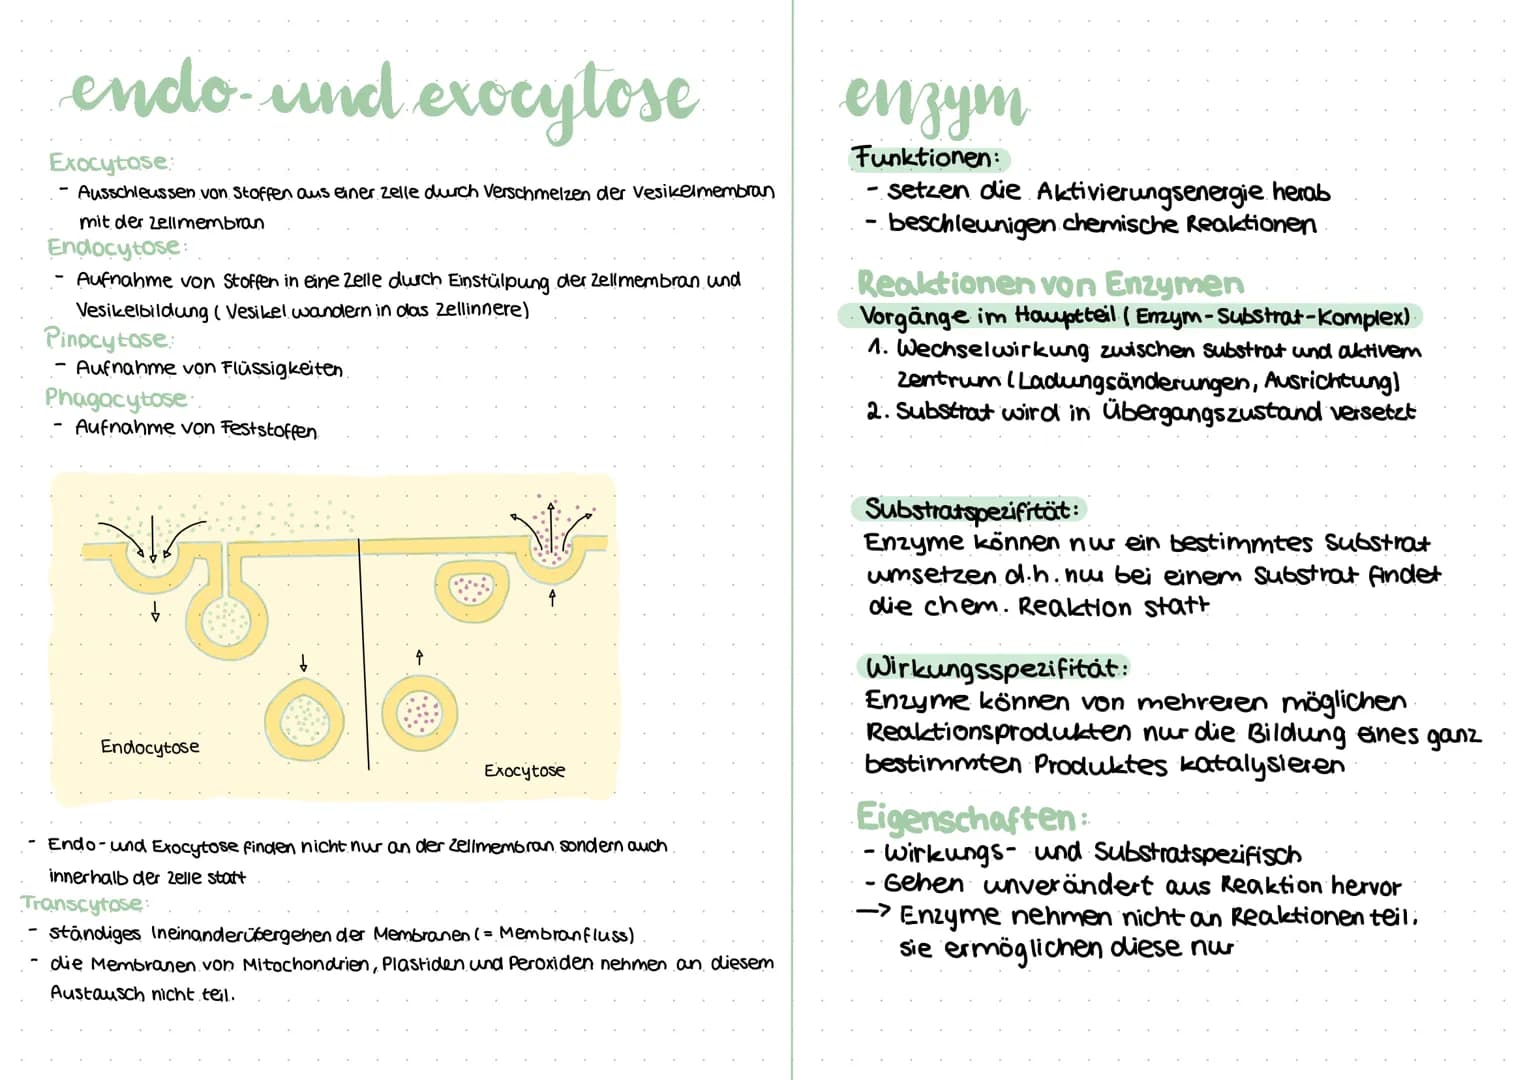 endo- und exocytose
Exocytose:
- Ausschleussen von Stoffen aus einer Zelle durch Verschmelzen der Vesikelmembran
mit der Zellmembran
Endocytose:
- Aufnahme von Stoffen in eine Zelle durch Einstülpung der Zellmembran und
Vesikelbildung ( Vesikel wandern in das Zellinnere)
Pinocytose:
- Aufnahme von Flüssigkeiten
Phagocytose
- Aufnahme von Feststoffen
Endocytose
Exocytose
- Endo- und Exocytose finden nicht nur an der Zellmembran sondern auch
innerhalb der Zelle statt
Transcytose:
- ständiges Ineinanderübergehen der Membranen (= Membranfluss)
- die Membranen von Mitochondrien, Plastiden und Peroxiden nehmen an diesem
Austausch nicht teil.
enzym
Funktionen:
- setzen die Aktivierungsenergie herab
- beschleunigen chemische Reaktionen
Reaktionen von Enzymen
Vorgänge im Hauptteil ( Enzym-Substrat-Komplex)
1. Wechselwirkung zwischen Substrat und aktivem
Zentrum (Ladungsänderungen, Ausrichtung)
2. Substrat wird in Übergangszustand versetzt
Substratspezifität:
Enzyme können nur ein bestimmtes Substrat
umsetzen d.h. nur bei einem Substrat findet
die chem. Reaktion statt
Wirkungsspezifität:
Enzyme können von mehreren möglichen
Reaktionsprodukten nur die Bildung eines ganz
bestimmten Produktes katalysieren
Eigenschaften:
- Wirkungs- und Substratspezifisch
- Gehen unverändert aus Reaktion hervor
-> Enzyme nehmen nicht an Reaktionen teil.
sie ermöglichen diese nur